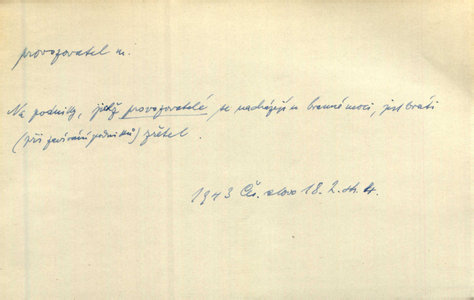 provozovatel m.
Na podniky, jichž provozovatelé se nacházejí u branné moci, jest bráti
(při zavírání podniků) zřetel.
1943 Čes. slovo 18. 2. str. 4.